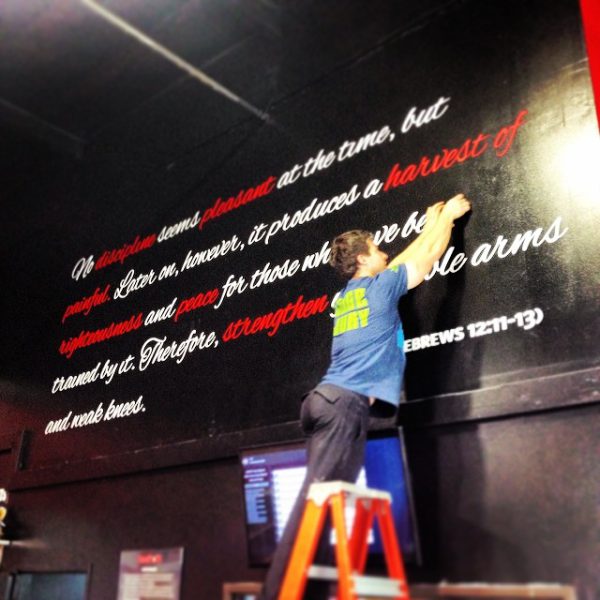 No discipline seems pleasant at the time, but
painful. Later on, however, it produces a harvest of
righteousness and peace for those
trained by it. Therefore, strengthen arms
and weak knees.
EBREWS 12:11-13)